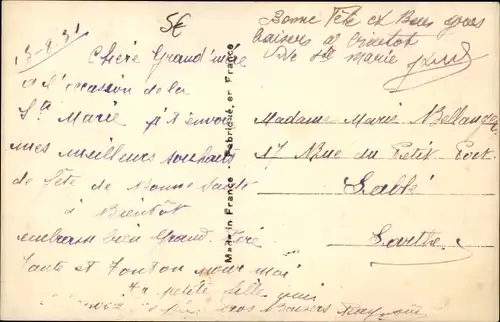 13-8-31
5€
Chère Grand'mère
à l'occasion de la
Ste Marie je t'envoi
mes meilleurs souhaits
de Fête de Bonne Santé
à Bientôt
embrasse bien Grand Père
Tante et Tonton pour moi
ta petite fille qui
gros Baisers
Made in France - Fabriqué en France
Bonne Fête et Bons gros
baisers à Bientôt
Vive Ste Marie
Madame Marie Bellanger
17 Rue du Petit Port
Sablé
Sarthe